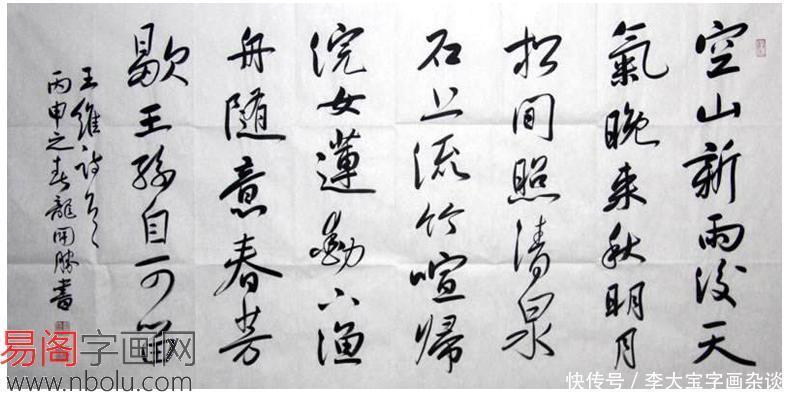 空山新雨後天
氣晚来秋明月
松間照清泉
石上流竹喧歸
浣女蓮動下漁
舟随意春芳
歇王孫自可留
王維詩
丙申之春龍開勝書
易阁字画网
www.nbolu.com
快传号/李大宝字画杂谈